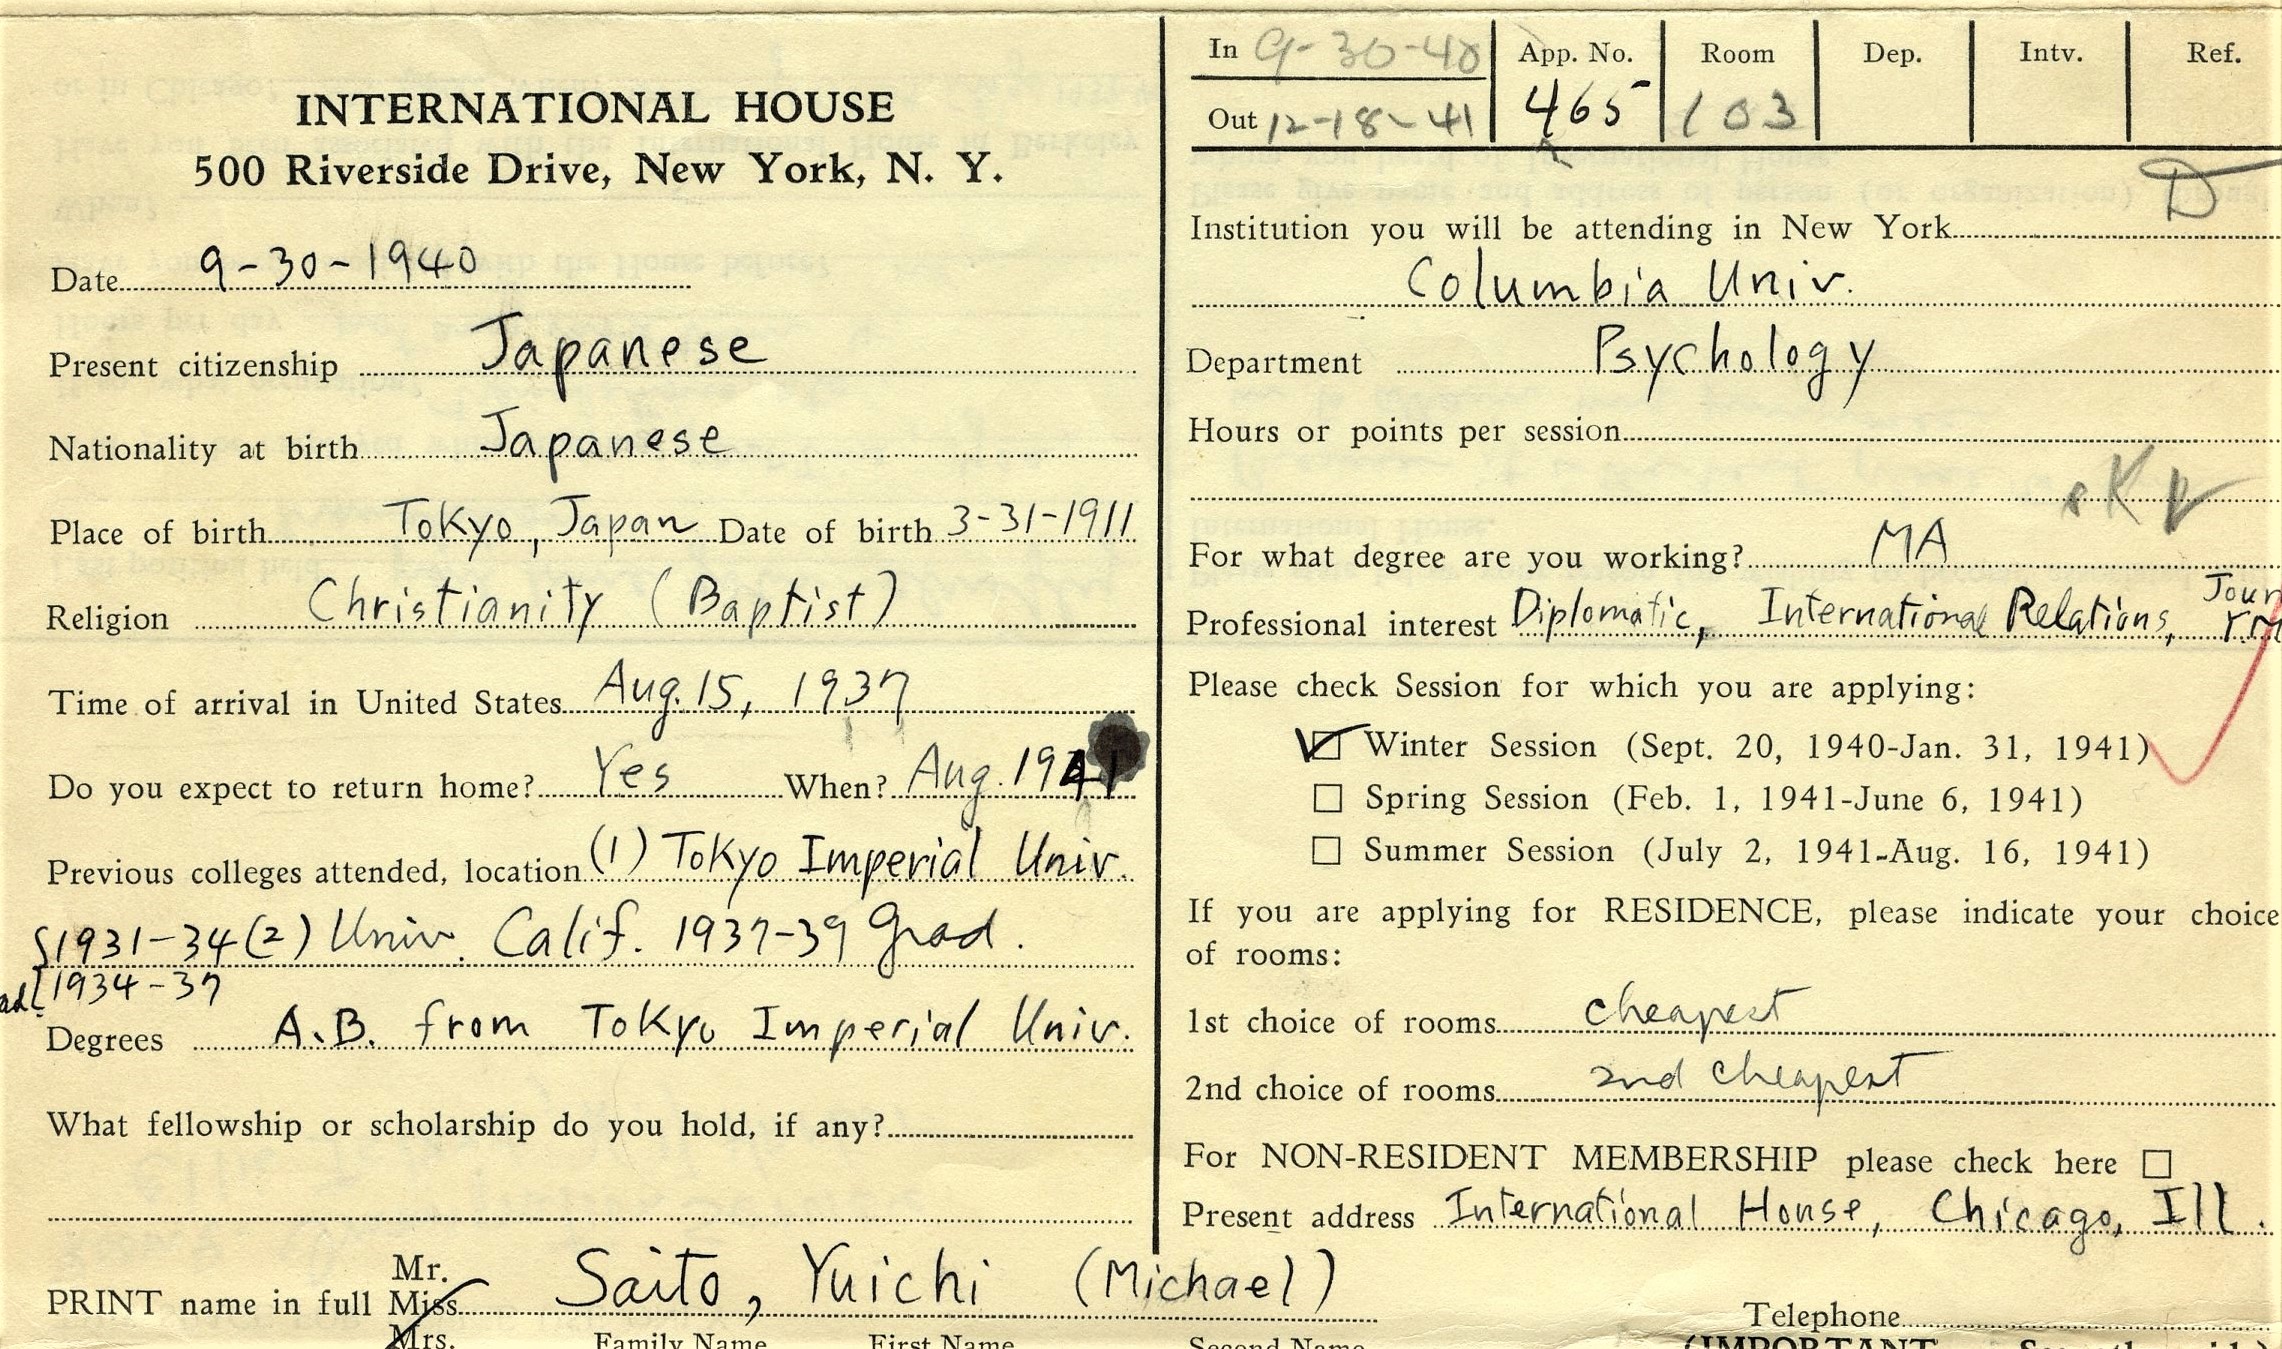 INTERNATIONAL HOUSE
500 Riverside Drive, New York, N. Y.
Date 9-30-1940
Present citizenship Japanese
Nationality at birth Japanese
Place of birth Tokyo, Japan Date of birth 3-31-1911
Religion Christianity (Baptist)
Time of arrival in United States Aug. 15, 1937
Do you expect to return home? Yes When? Aug. 1941
Previous colleges attended, location (1) Tokyo Imperial Univ.
1931-34 (2) Univ. Calif. 1937-39 grad.
1934-37
Degrees A.B. from Tokyo Imperial Univ.
What fellowship or scholarship do you hold, if any?
In 9-30-40
Out 12-18-41
App. No. 465
Room 103
Dep.
Intv.
Ref.
D
Institution you will be attending in New York
Columbia Univ.
Department Psychology
Hours or points per session
For what degree are you working? MA
Professional interest Diplomatic, International Relations, Jour
Please check Session for which you are applying:
Winter Session (Sept. 20, 1940-Jan. 31, 1941)
Spring Session (Feb. 1, 1941-June 6, 1941)
Summer Session (July 2, 1941-Aug. 16, 1941)
If you are applying for RESIDENCE, please indicate your choice
of rooms:
1st choice of rooms cheapest
2nd choice of rooms 2nd cheapest
For NON-RESIDENT MEMBERSHIP please check here
Present address International House, Chicago, Ill.
Mr.
PRINT name in full Miss Saito, Yuichi (Michael)
Mrs.
Family Name First Name Second Name
Telephone
(IMPORTANT